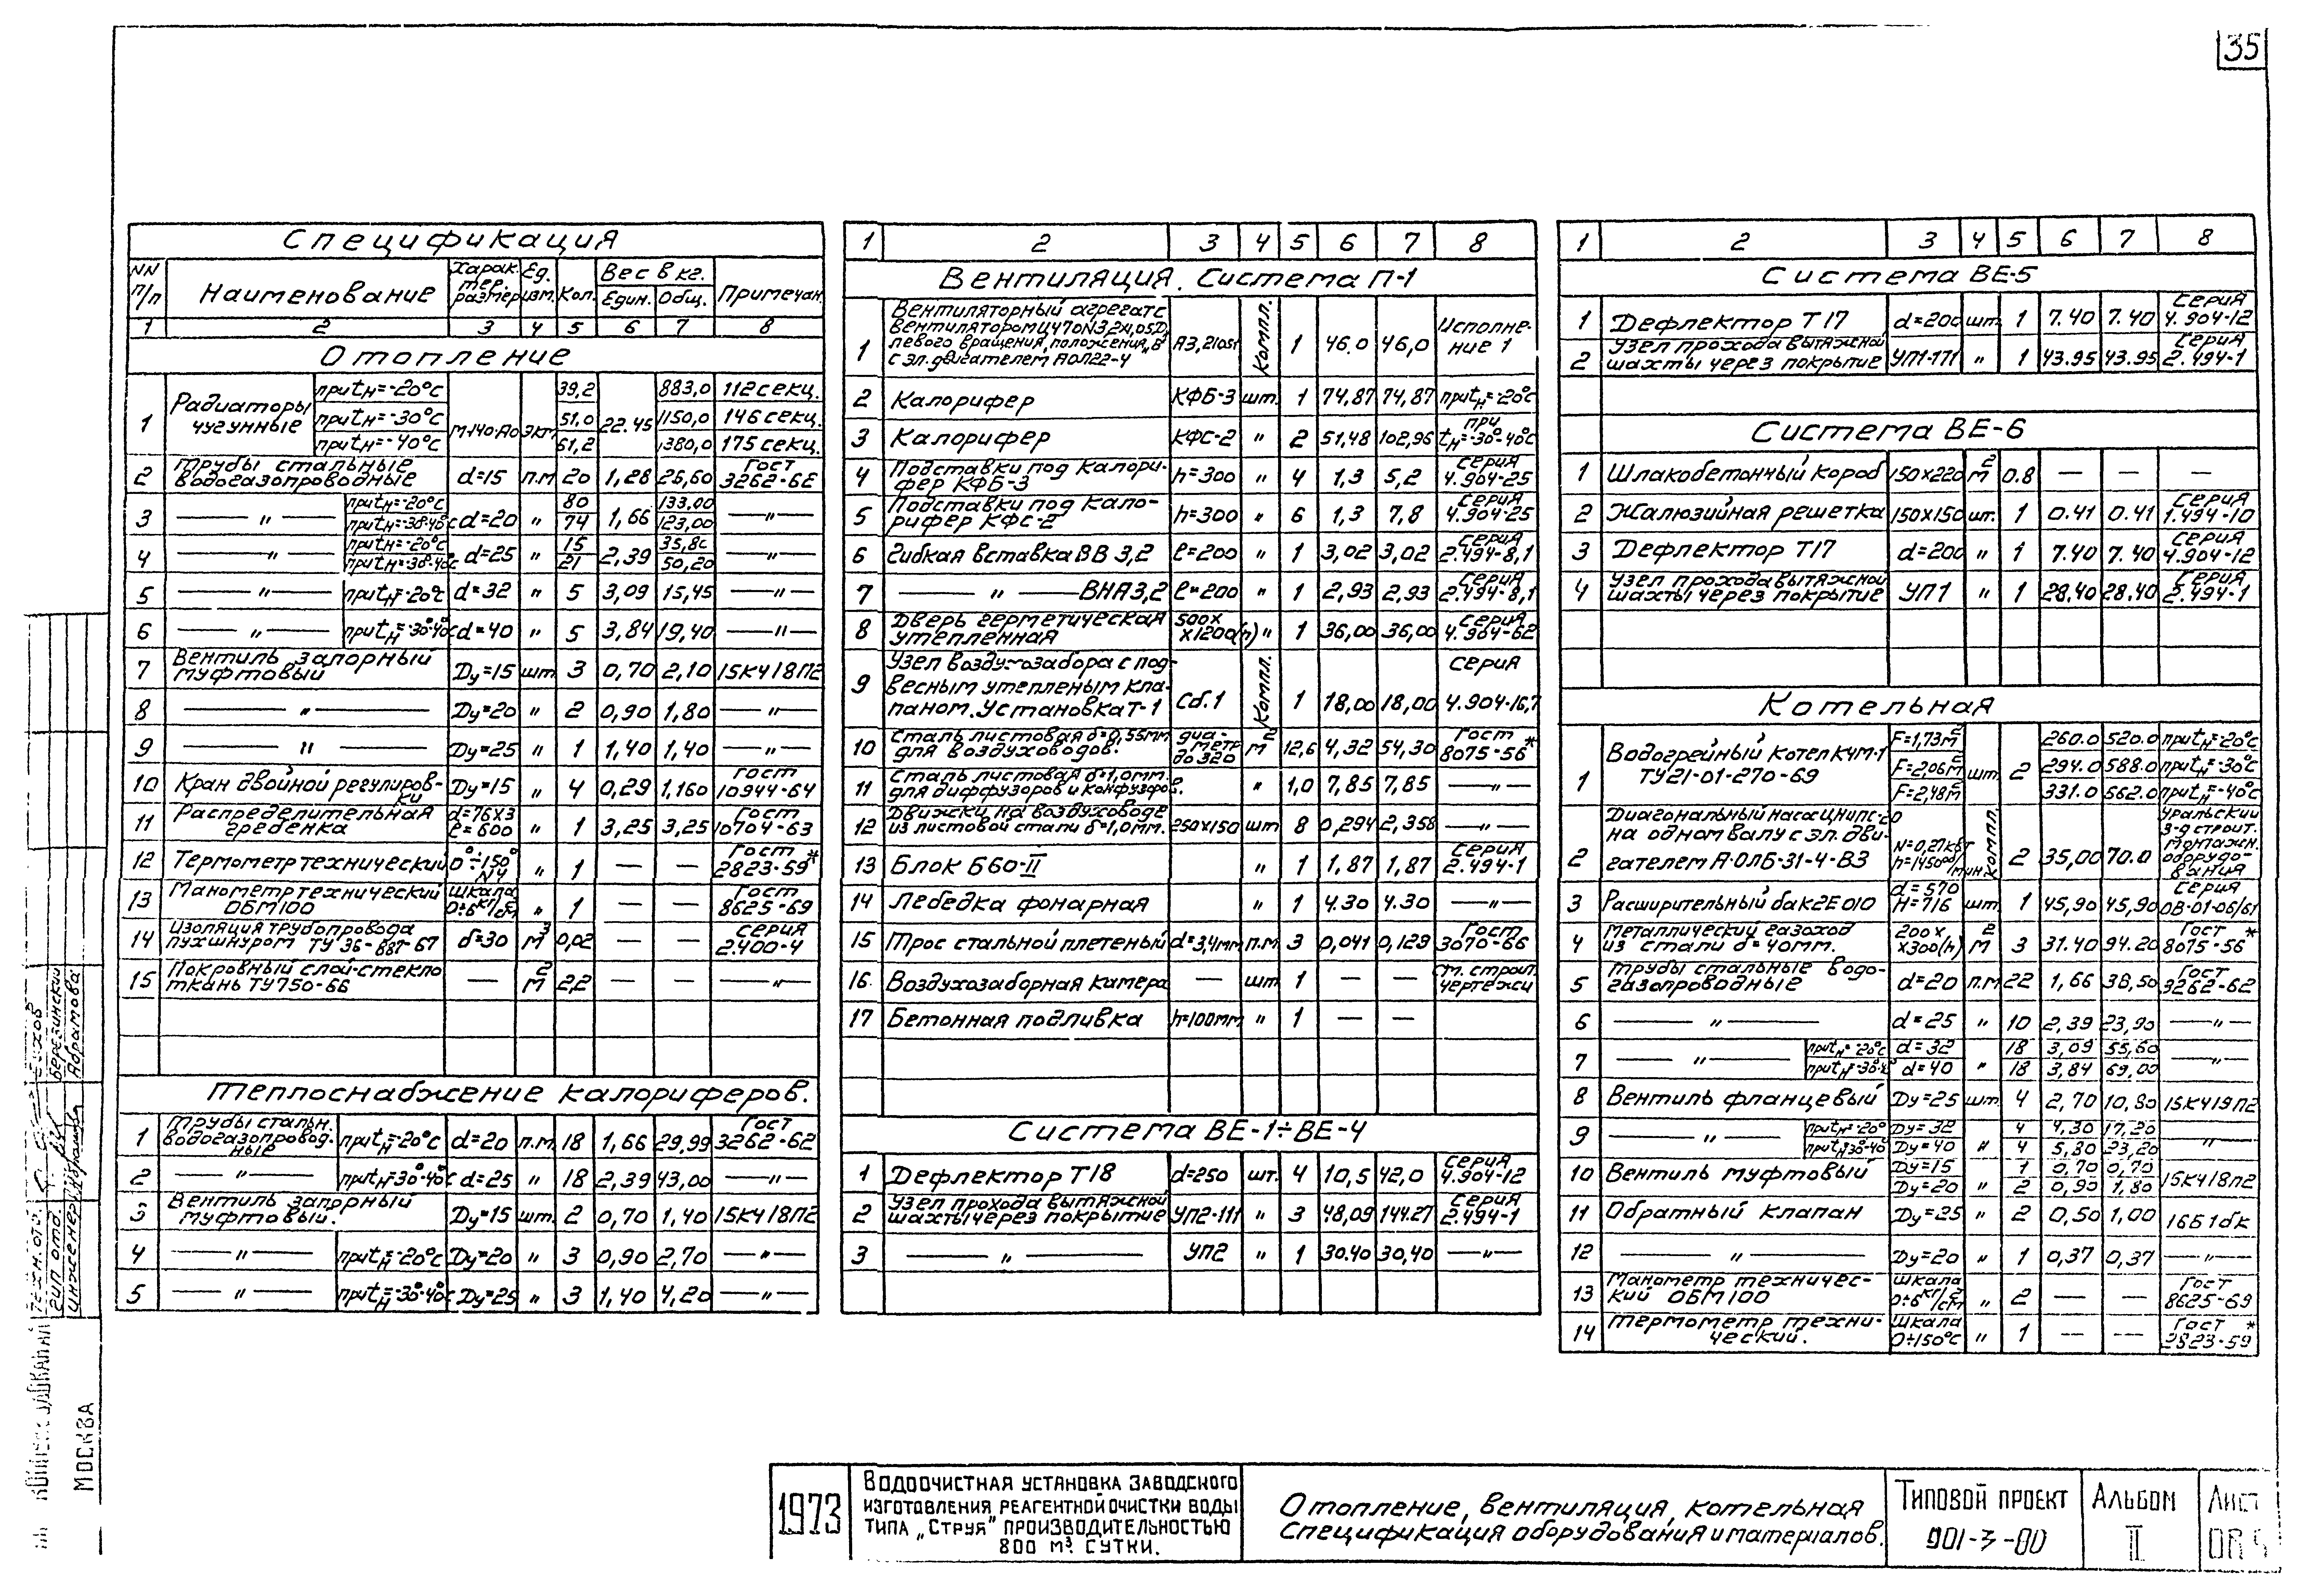 35
Спецификация
NN п/п Наименование Харак-тер. размер Ед. изм. Кол. Вес в кг. Един. Общ. Примечан.
1 2 3 4 5 6 7 8
Отопление
1 Радиаторы чугунные М-140-АО экм 22.45
при tн=-20°с 39,2 883,0 112 секц.
при tн=-30°с 51,0 1150,0 146 секц.
при tн=-40°с 61,2 1380,0 175 секц.
2 Трубы стальные водогазопроводные d=15 п.м 20 1,28 26,60 Гост 3262-62
3 —"— при tн=-20°с 80 133,00
при tн=-30-40°с d=20 " 74 1,66 123,00 —"—
4 —"— при tн=-20°с 15 35,80
при tн=-30-40°с d=25 " 21 2,39 50,20 —"—
5 —"— при tн=-20°с d=32 " 5 3,09 15,45 —"—
6 —"— при tн=-30-40°с d=40 " 5 3,84 19,40 —"—
7 Вентиль запорный муфтовый Ду=15 шт 3 0,70 2,10 15кч18п2
8 —"— Ду=20 " 2 0,90 1,80 —"—
9 —"— Ду=25 " 1 1,40 1,40 —"—
10 Кран двойной регулировки Ду=15 " 4 0,29 1,160 Гост 10944-64
11 Распределительная гребенка d=76х3 ℓ=600 " 1 3,25 3,25 Гост 10704-63
12 Термометр технический 0°÷150° N4 " 1 — — Гост 2823-59*
13 Манометр технический ОБМ100 шкала 0÷6 кг/см² " 1 — — Гост 8625-69
14 Изоляция трубопровода пухшнуром ТУ 36-887-67 δ=30 м³ 0,02 — — серия 2.400-4
15 Покровный слой-стекло ткань ТУ750-66 — м² 2,2 — — —"—
Теплоснабжение калориферов.
1 Трубы стальн. водогазопровод-ные при tн=-20°с d=20 п.м 18 1,66 29,99 Гост 3262-62
2 —"— при tн=-30-40°с d=25 " 18 2,39 43,00 —"—
3 Вентиль запорный муфтовый. Ду=15 шт. 2 0,70 1,40 15кч18п2
4 —"— при tн=-20°с Ду=20 " 3 0,90 2,70 —"—
5 —"— при tн=-30-40°с Ду=25 " 3 1,40 4,20 —"—
1 2 3 4 5 6 7 8
Вентиляция. Система П-1
1 Вентиляторный агрегат с вентилятором Ц4 70N3,2х1,05D, левого вращения, положения „В" с эл. двигателем АОЛ22-4 А3,2105-1 компл. 1 46.0 46,0 Исполне-ние 1
2 Калорифер КФБ-3 шт. 1 74,87 74,87 при tн=-20°с
3 Калорифер КФС-2 " 2 51,48 102,96 при tн=-30-40°с
4 Подставки под калори-фер КФБ-3 h=300 " 4 1,3 5,2 серия 4.904-25
5 Подставки под кало-рифер КФС-2 h=300 " 6 1,3 7,8 серия 4.904-25
6 Гибкая вставка ВВ 3,2 ℓ=200 " 1 3,02 3,02 серия 2.494-8,1
7 —"— ВНА3,2 ℓ=200 " 1 2,93 2,93 серия 2.494-8,1
8 Дверь герметическая утепленная 500х х1200(h) " 1 36,00 36,00 серия 4.904-62
9 Узел воздухозабора с под-весным утепленым кла-паном. Установка Т-1 Сб.1 компл. 1 18,00 18,00 серия 4.904-16,7
10 Сталь листовая δ=0,55мм для воздуховодов. диа-метр до 320 м² 12,6 4,32 54,30 Гост 8075-56*
11 Сталь листовая δ=1,0мм. для диффузоров и конфузоров. " 1,0 7,85 7,85 —"—
12 Движки на воздуховоде из листовой стали δ=1,0мм. 250х150 шт 8 0,294 2,358 —"—
13 Блок Б60-II " 1 1,87 1,87 серия 2.494-1
14 Лебедка фонарная " 1 4.30 4.30 —"—
15 Трос стальной плетеный d=3,4мм п.м 3 0,041 0,129 Гост 3070-66
16. Воздухозаборная камера — шт 1 — — см. строит. чертежи
17 Бетонная подливка h=100мм " 1 — —
Система ВЕ-1÷ВЕ-4
1 Дефлектор Т18 d=250 шт. 4 10,5 42,0 серия 4.904-12
2 Узел прохода вытяжной шахты через покрытие УП2-111 " 3 48,09 144.27 серия 2.494-1
3 —"— УП2 " 1 30.40 30,40 —"—
1 2 3 4 5 6 7 8
Система ВЕ-5
1 Дефлектор Т17 d=200 шт 1 7.40 7.40 серия 4.904-12
2 Узел прохода вытяжной шахты через покрытие УП1-171 " 1 43.95 43.95 серия 2.494-1
Система ВЕ-6
1 Шлакобетонный короб 150х220 м² 0.8 — — —
2 Жалюзийная решетка 150х150 шт. 1 0.41 0.41 серия 1.494-10
3 Дефлектор Т17 d=200 " 1 7.40 7.40 серия 4.904-12
4 Узел прохода вытяжной шахты через покрытие УП1 " 1 28.40 28.40 серия 2.494-1
Котельная
1 Водогрейный котел КЧМ-1 ТУ21-01-270-69 шт. 2
F=1,73м² 260.0 520.0 при tн=-20°с
F=2,06м² 294.0 588.0 при tн=-30°с
F=2,48м² 331.0 662.0 при tн=-40°с
2 Диагональный насос ЦНИПС-20 на одном валу с эл. дви-гателем А-ОЛБ-31-4-В3 N=0,27квт n=1450 об/мин компл. 2 35,00 70.0 Уральский з-д строит. монтажн. оборудо-вания
3 Расширительный бак 2Е010 d=570 H=716 шт. 1 45,90 45,90 серия ОВ-01-06/61
4 Металлический газоход из стали δ=40мм. 200х х300(h) м² 3 31.40 94.20 Гост 8075-56*
5 Трубы стальные водо-газопроводные d=20 п.м 22 1,66 36,50 Гост 3262-62
6 —"— d=25 " 10 2,39 23,90 —"—
7 —"— при tн=-20°с d=32 18 3,09 55,60
при tн=-30-40 d=40 " 18 3,84 69,00 —"—
8 Вентиль фланцевый Ду=25 шт. 4 2,70 10,80 15кч19п2
9 —"— при tн=-20° Ду=32 4 4,30 17,20
при tн=-30-40 Ду=40 " 4 5,80 23,20 "
10 Вентиль муфтовый Ду=15 1 0,70 0,70
Ду=20 " 2 0,90 1,80 15кч18п2
11 Обратный клапан Ду=25 " 2 0,50 1,00 16Б1бк
12 —"— Ду=20 " 1 0,37 0,37 —"—
13 Манометр техничес-кий ОБМ100 шкала 0÷6 кг/см² " 2 — — Гост 8625-69
14 Термометр техни-ческий. шкала 0÷150°с " 1 — — Гост 2823-59*
Техн. отд.
Гип отд. Березинский
Инженер Абрамова
Москва
1973
Водоочистная установка заводского
изготовления реагентной очистки воды
типа „Струя" производительностью
800 м³ сутки.
Отопление, вентиляция, котельная
Спецификация оборудования и материалов.
Типовой проект
901-3-00
Альбом
II
Лист